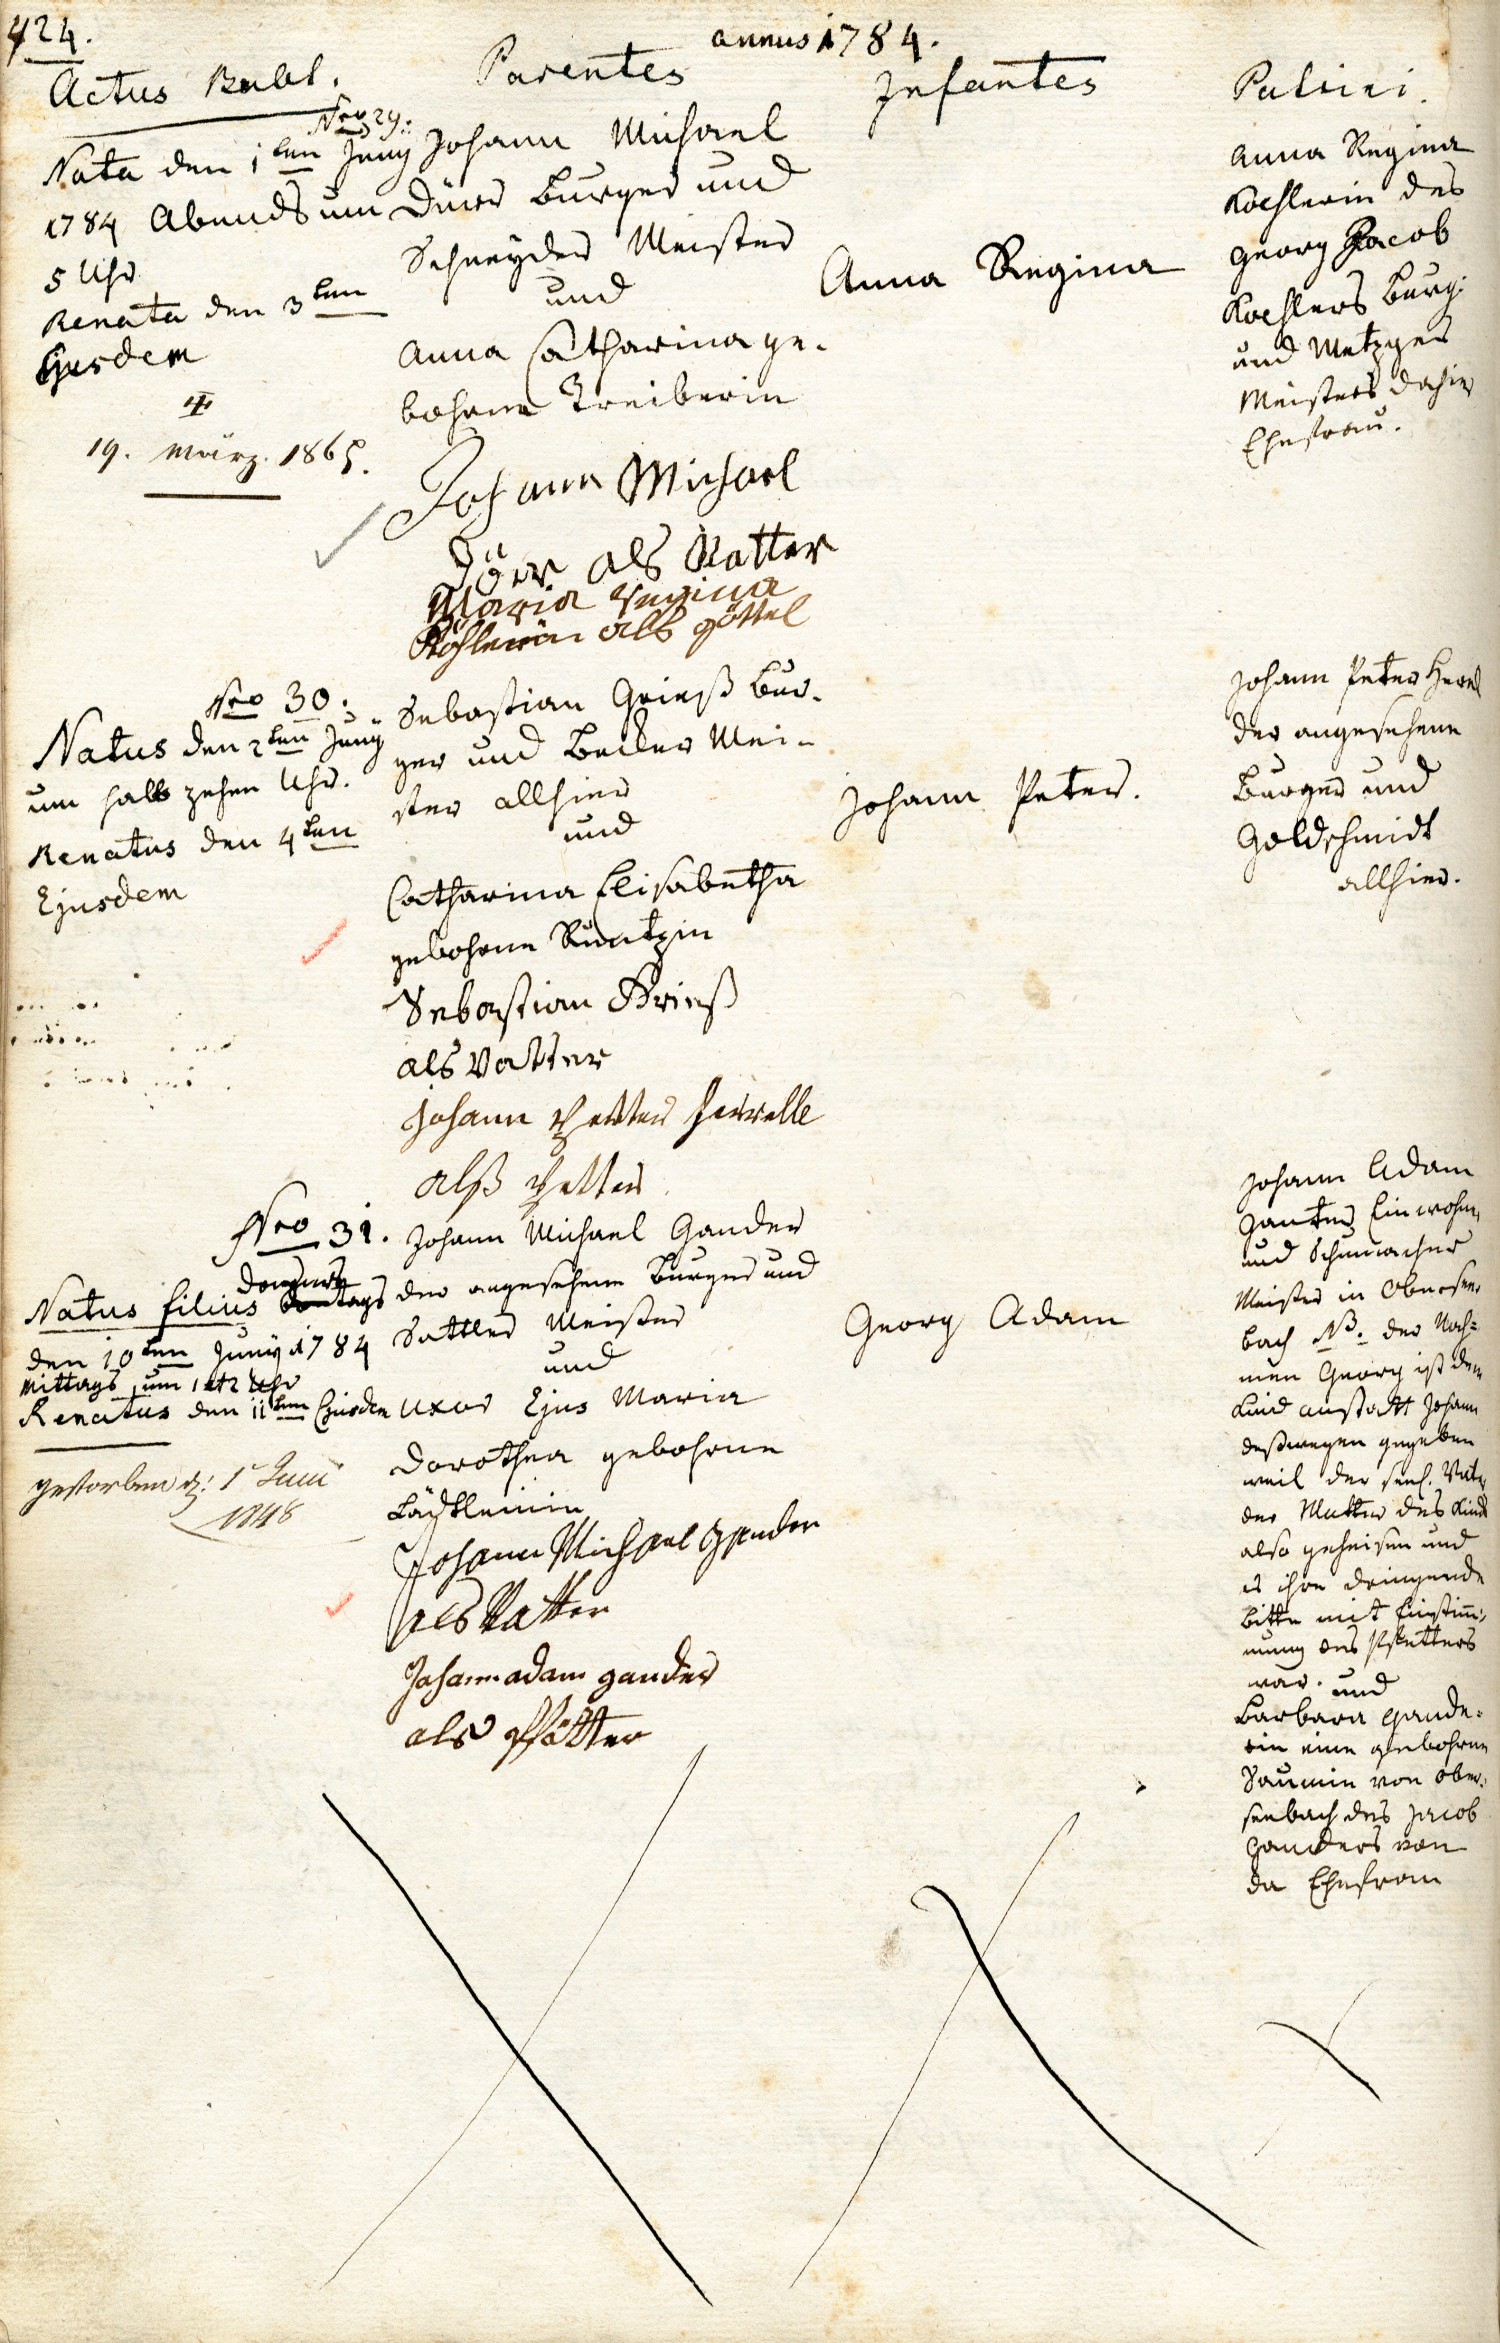 424.
annus 1784.
Actus Babt.
Parentes
Infantes
Patrini.
Nro 29.
Nata den 1ten Juny
1784 Abends um
5 Uhr
Renata den 3ten
Ejusdem
19. März. 1865.
Johann Michael
Dürr Burger und
Schneyder Meister
und
Anna Catharina ge-
bohrne Treiberin
Johann Michael
Dürr als Vatter
Maria Regina
Köhlerin als göttel
Anna Regina
Anna Regina
Koehlerin des
Georg Jacob
Koehlers Burg:
und Metzger
Meisters dahier
Ehefrau.
Nro 30.
Natus den 2ten Juny
um halb zehen Uhr.
Renatus den 4ten
Ejusdem
Sebastian Grieß Bur-
ger und Becker Mei-
ster allhier
und
Catharina Elisabetha
gebohrne
Sebastian Grieß
als Vatter
Johann Petter Herrelle
alß Petter
Johann Peter.
Johann Peter
der angesehene
Burger und
Goldschmidt
allhier.
Nro 31.
Natus filius
den 10ten Juny 1784
Mittags um
Renatus den 11ten Ejusdem
gestorben d: 1 Juni
1848
Johann Michael Gander
der angesehene Burger und
Sattler Meister
und
uxor Ejus Maria
Dorothea gebohrne
Johann Michael Gander
als Vatter
Johann adam gander
als Pfötter
Georg Adam
Johann Adam
Ganter Einwohner
und Schumacher
Meister in Obersee-
bach NB. der Nah-
men Georg ist dem
Kind anstatt Johann
deßwegen gegeben
weil der seel. Vater
der Mutter des Kinds
also geheisen und
es ihre dringende
Bitte mit Einstim-
mung des Pfetters
war. und
Barbara Gande-
rin eine gebohrne
von Ober-
seebach des Jacob
Ganders von
da Ehefrau